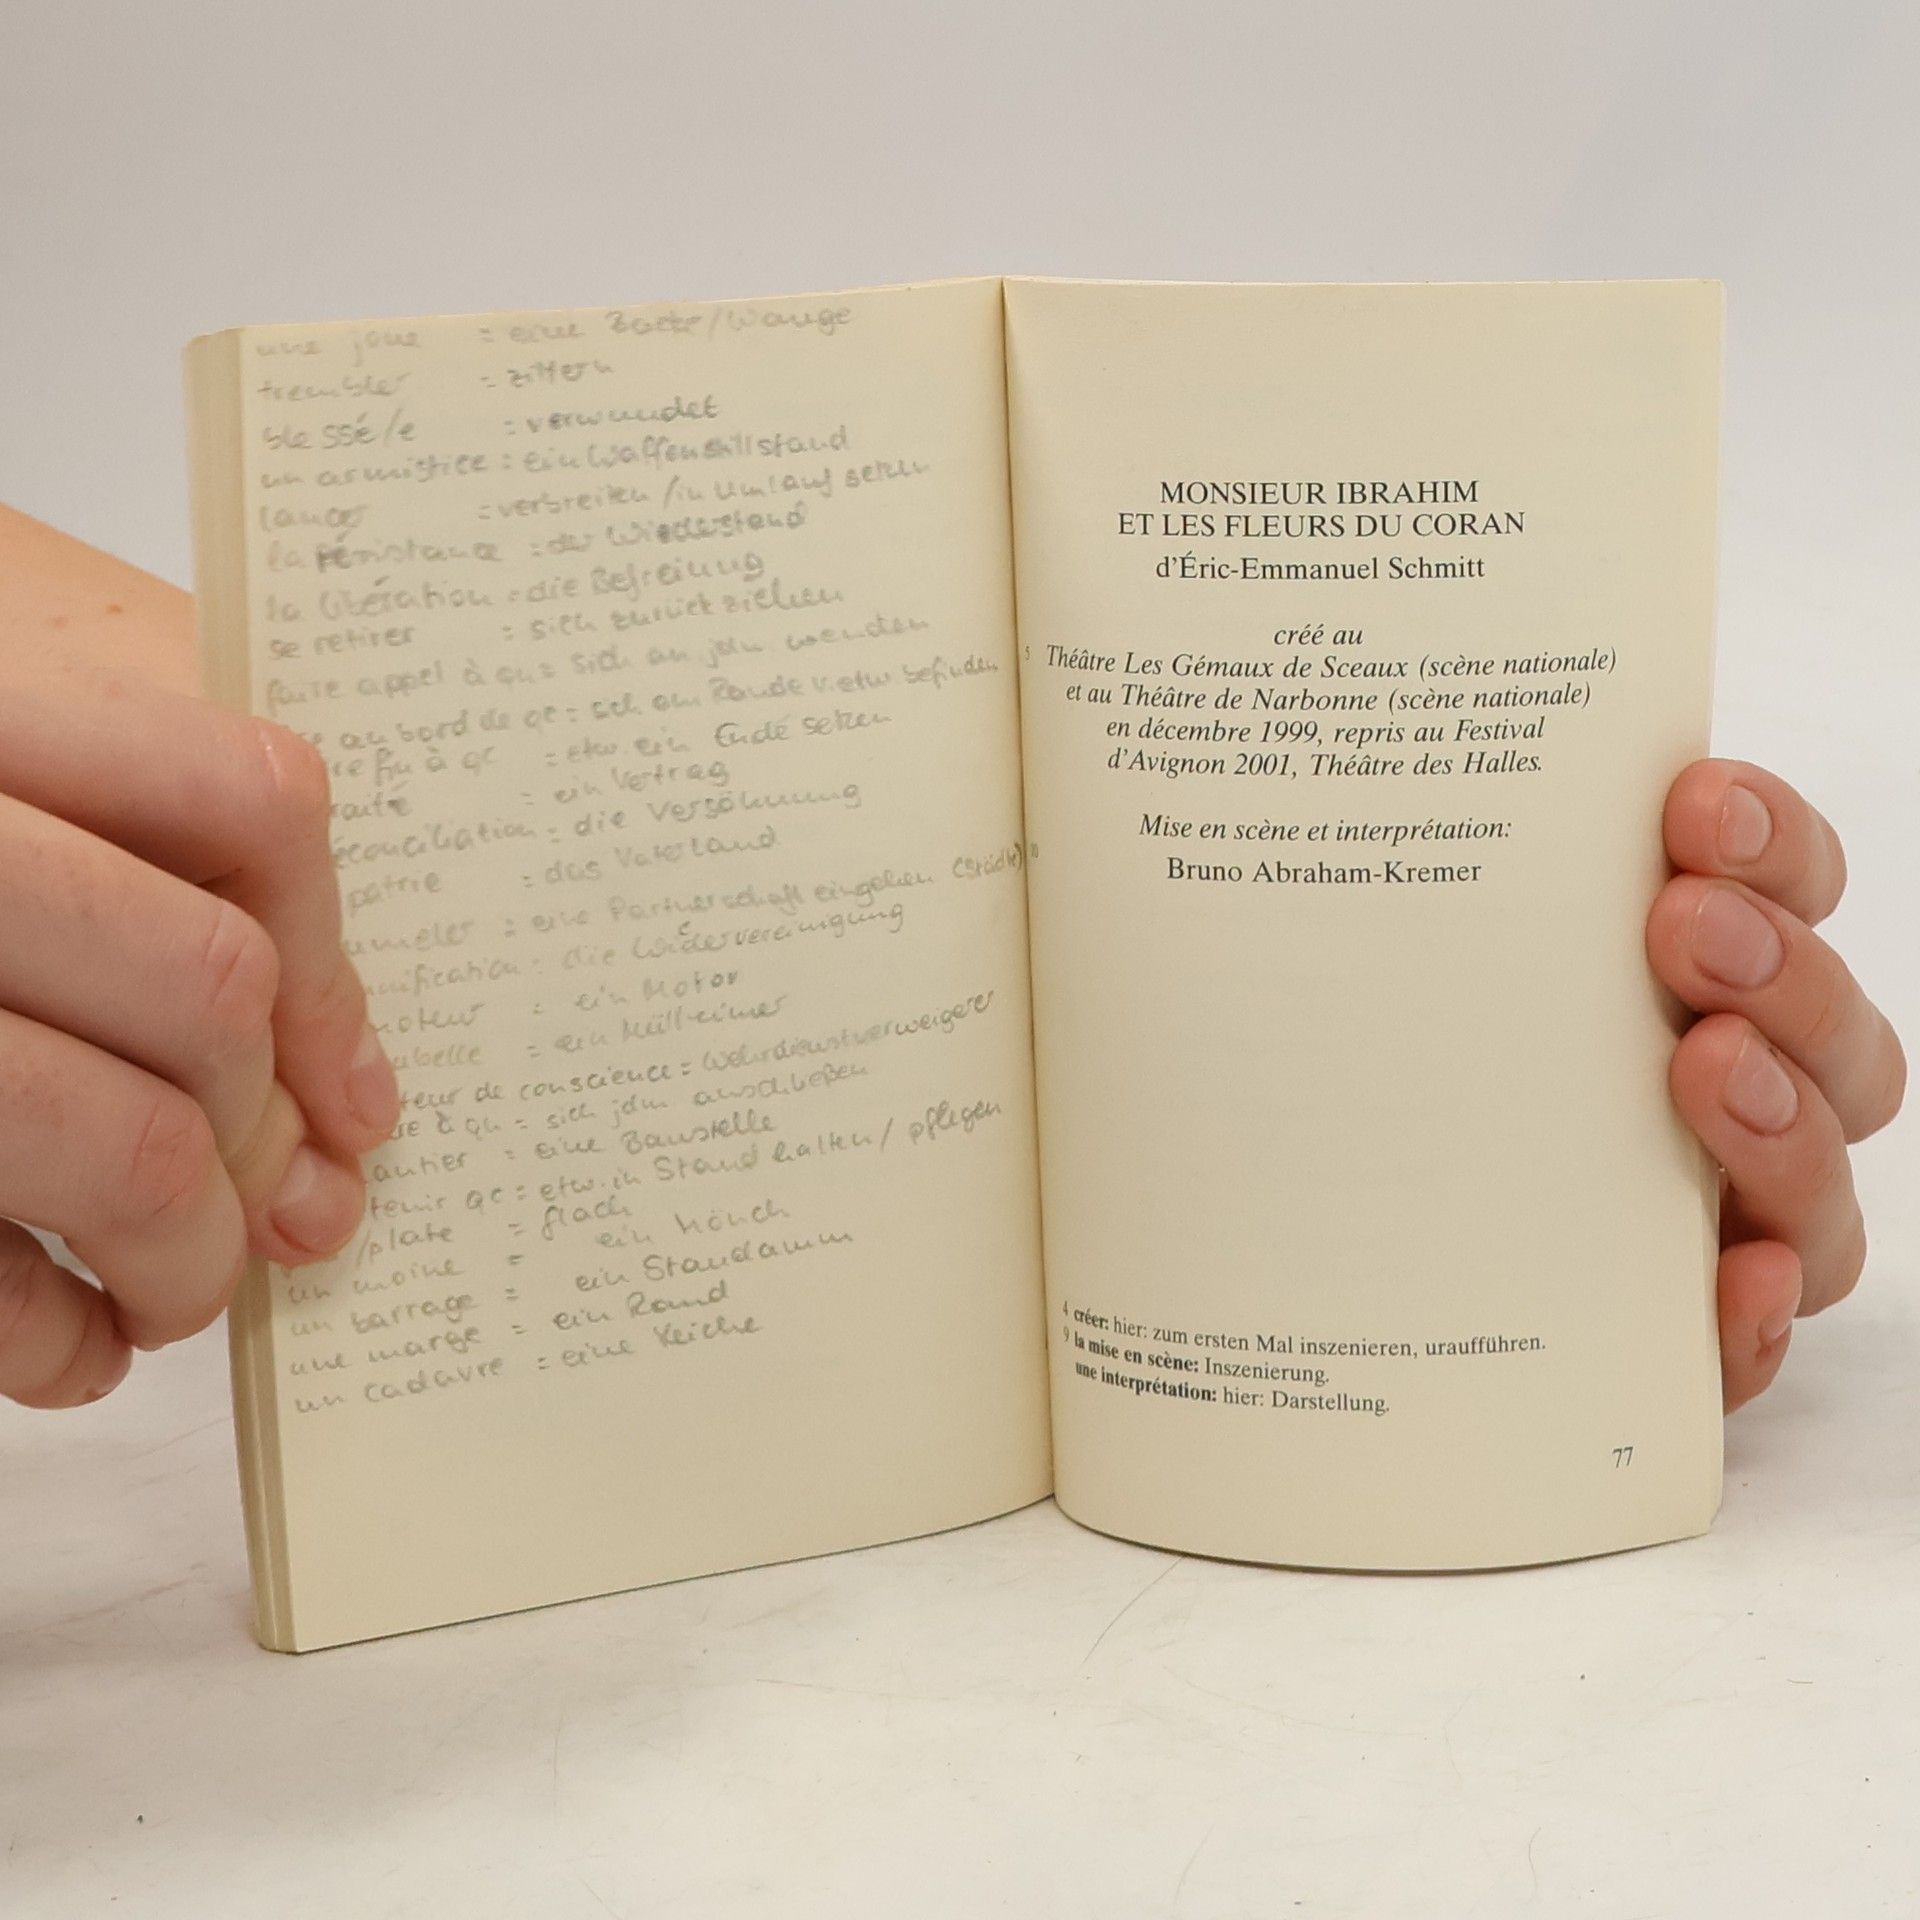 une joue = eine Backe/Wange
trembler = zittern
blessé/e = verwundet
un armistice = ein Waffenstillstand
lancer = verbreiten/in Umlauf setzen
la résistance = der Wiederstand
la libération = die Befreiung
se retirer = sich zurückziehen
faire appel à qn = sich an jdn wenden
au bord de qc = sich am Rande v. etw befinden
fin à qc = etw. ein Ende setzen
= ein Vertrag
= die Versöhnung
patrie = das Vaterland
= eine Partnerschaft eingehen (Städte)
= die Wiedervereinigung
= ein Motor
= ein Mülleimer
de conscience = Wehrdienstverweigerer
à qn = sich jdm anschließen
= eine Baustelle
qc = etw. in Stand halten/pflegen
/plate = flach
un moine = ein Mönch
un barrage = ein Staudamm
une marge = ein Rand
un cadavre = eine Leiche
MONSIEUR IBRAHIM
ET LES FLEURS DU CORAN
d'Éric-Emmanuel Schmitt
créé au
5 Théâtre Les Gémaux de Sceaux (scène nationale)
et au Théâtre de Narbonne (scène nationale)
en décembre 1999, repris au Festival
d'Avignon 2001, Théâtre des Halles.
Mise en scène et interprétation:
10 Bruno Abraham-Kremer
4 créer: hier: zum ersten Mal inszenieren, uraufführen.
9 la mise en scène: Inszenierung.
une interprétation: hier: Darstellung.
77